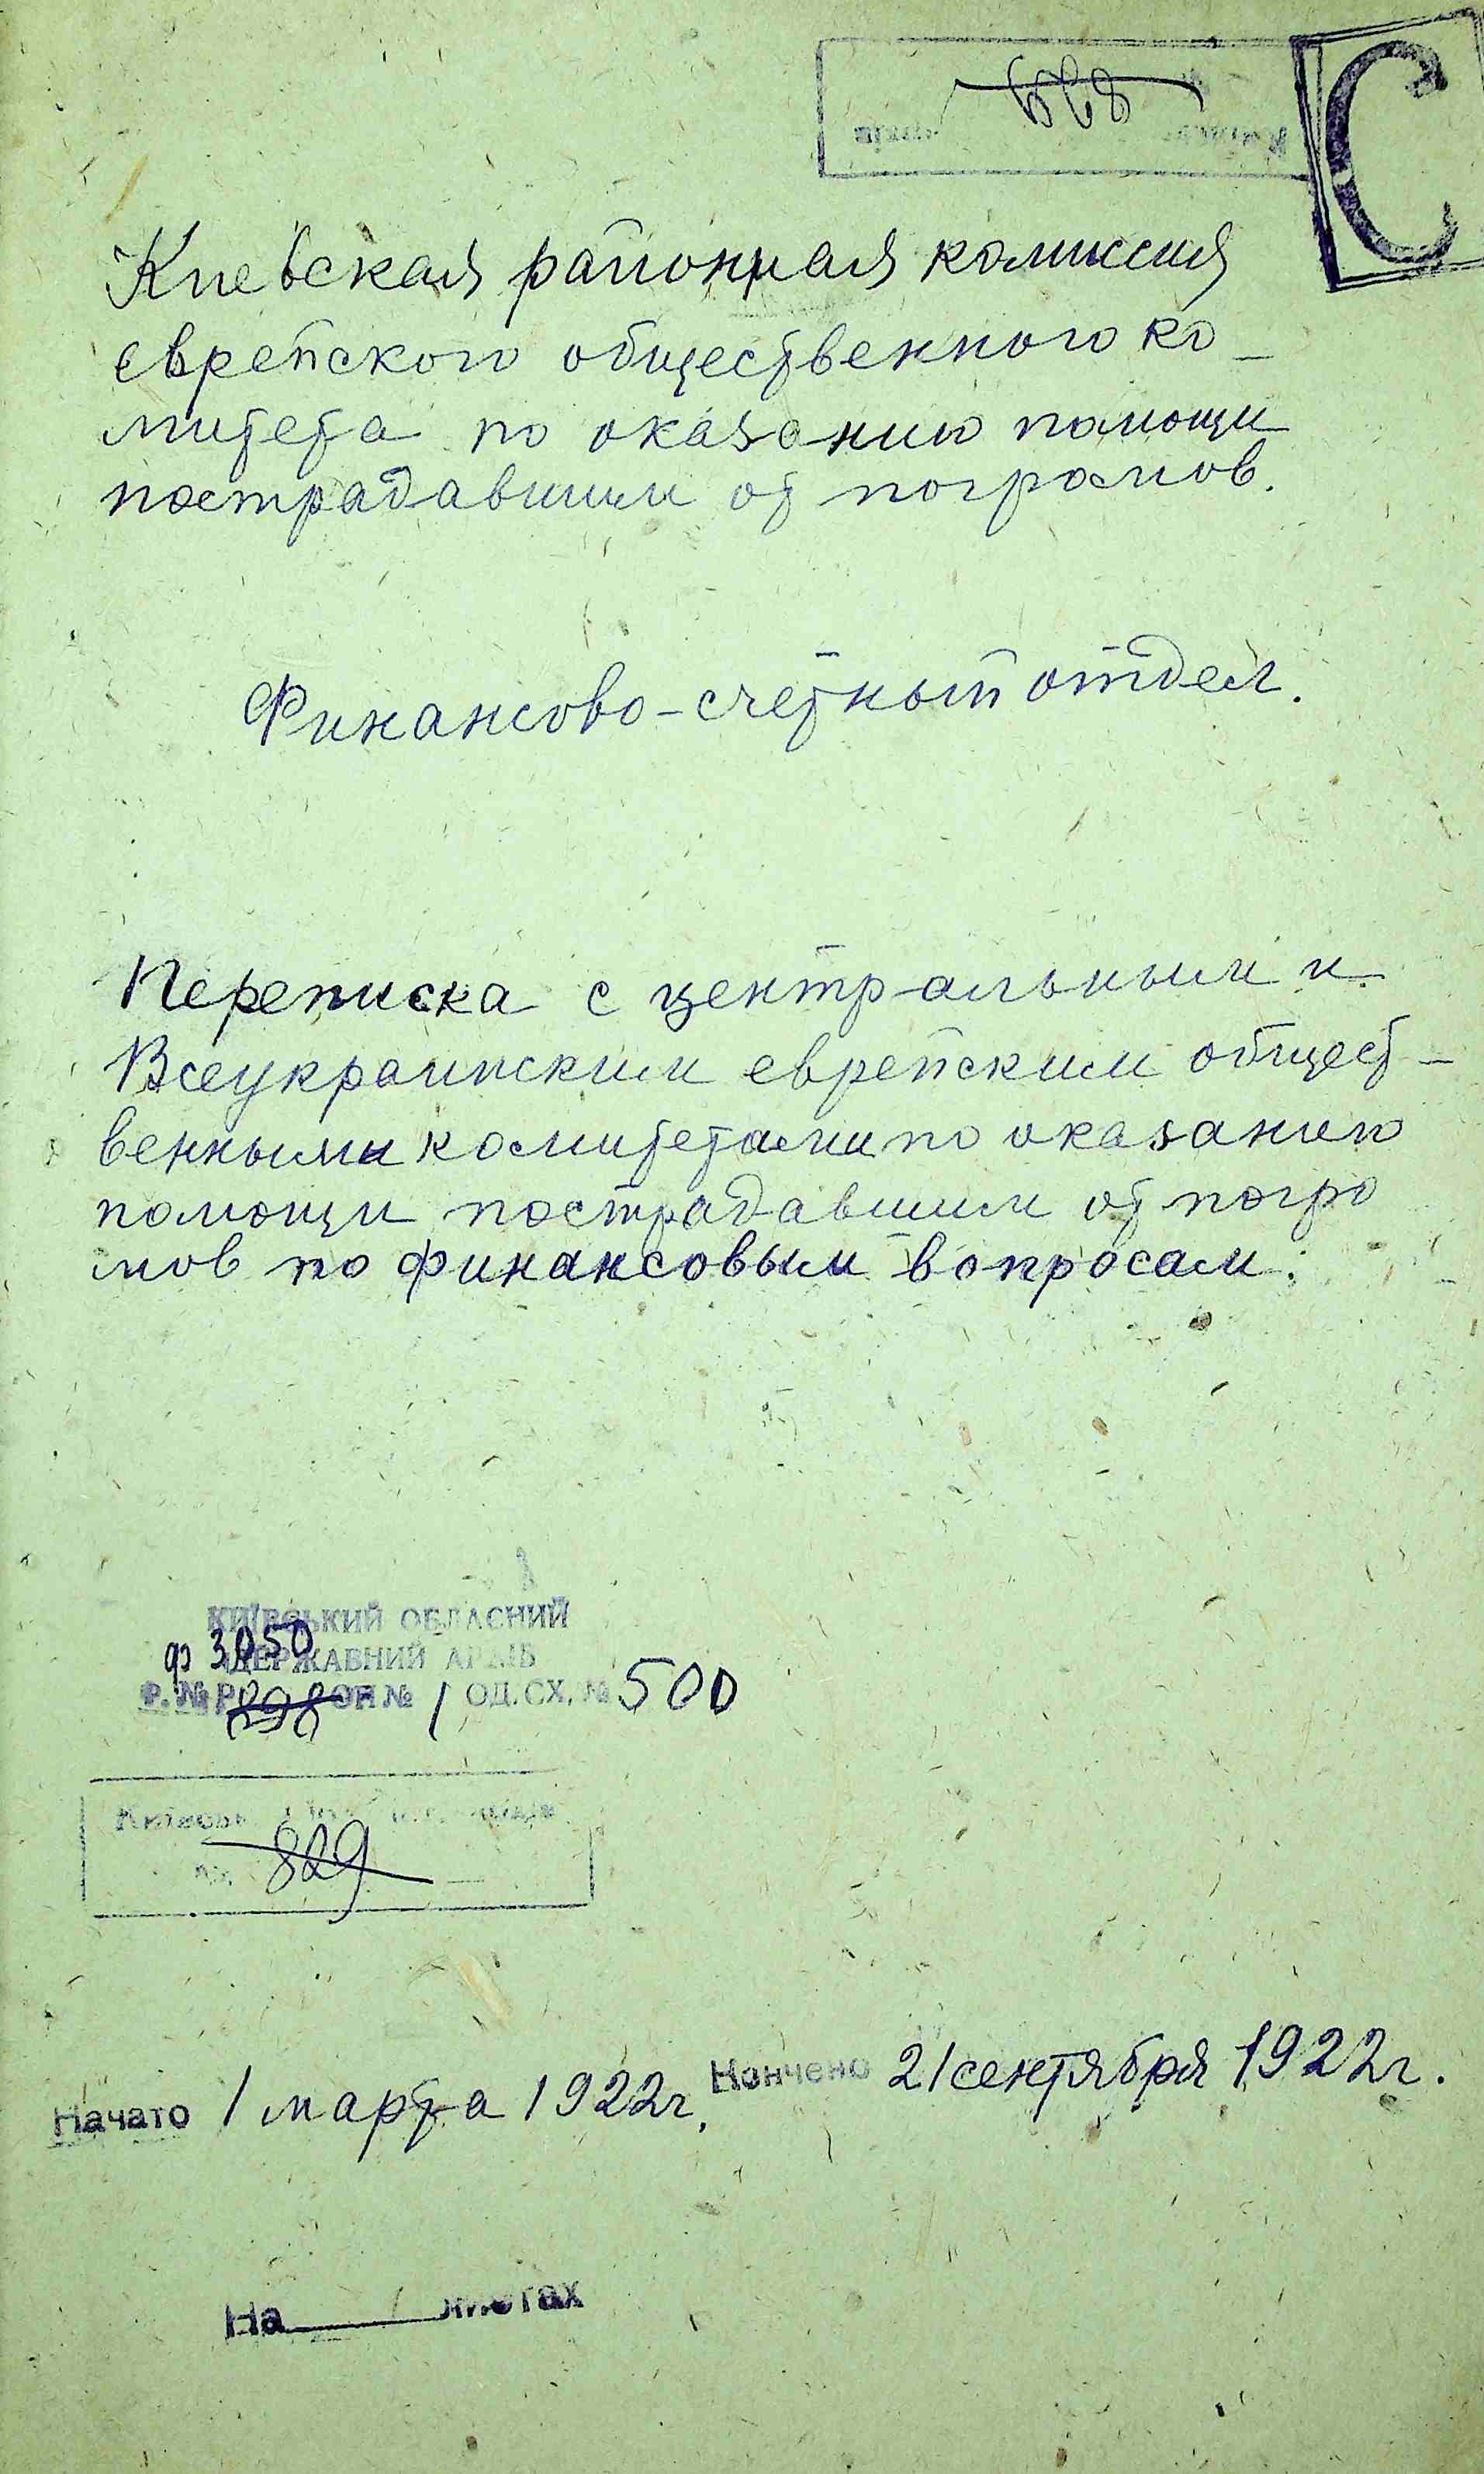 С
829
Киевская районная комиссия
еврейского общественного ко-
митета по оказанию помощи
пострадавшим от погромов.
Финансово-счетный отдел.
Переписка с центральным и
Всеукраинским еврейским общест-
венными комитетами по оказанию
помощи пострадавшим от погро
мов по финансовым вопросам.
КИЇВСЬКИЙ ОБЛАСНИЙ
ф 3050
ДЕРЖАВНИЙ АРХІВ
Ф. № Р 898 ОП № 1 ОД. СХ. № 500
829
Начато 1 марта 1922г. Кончено 21 сентября 1922г.
На листах